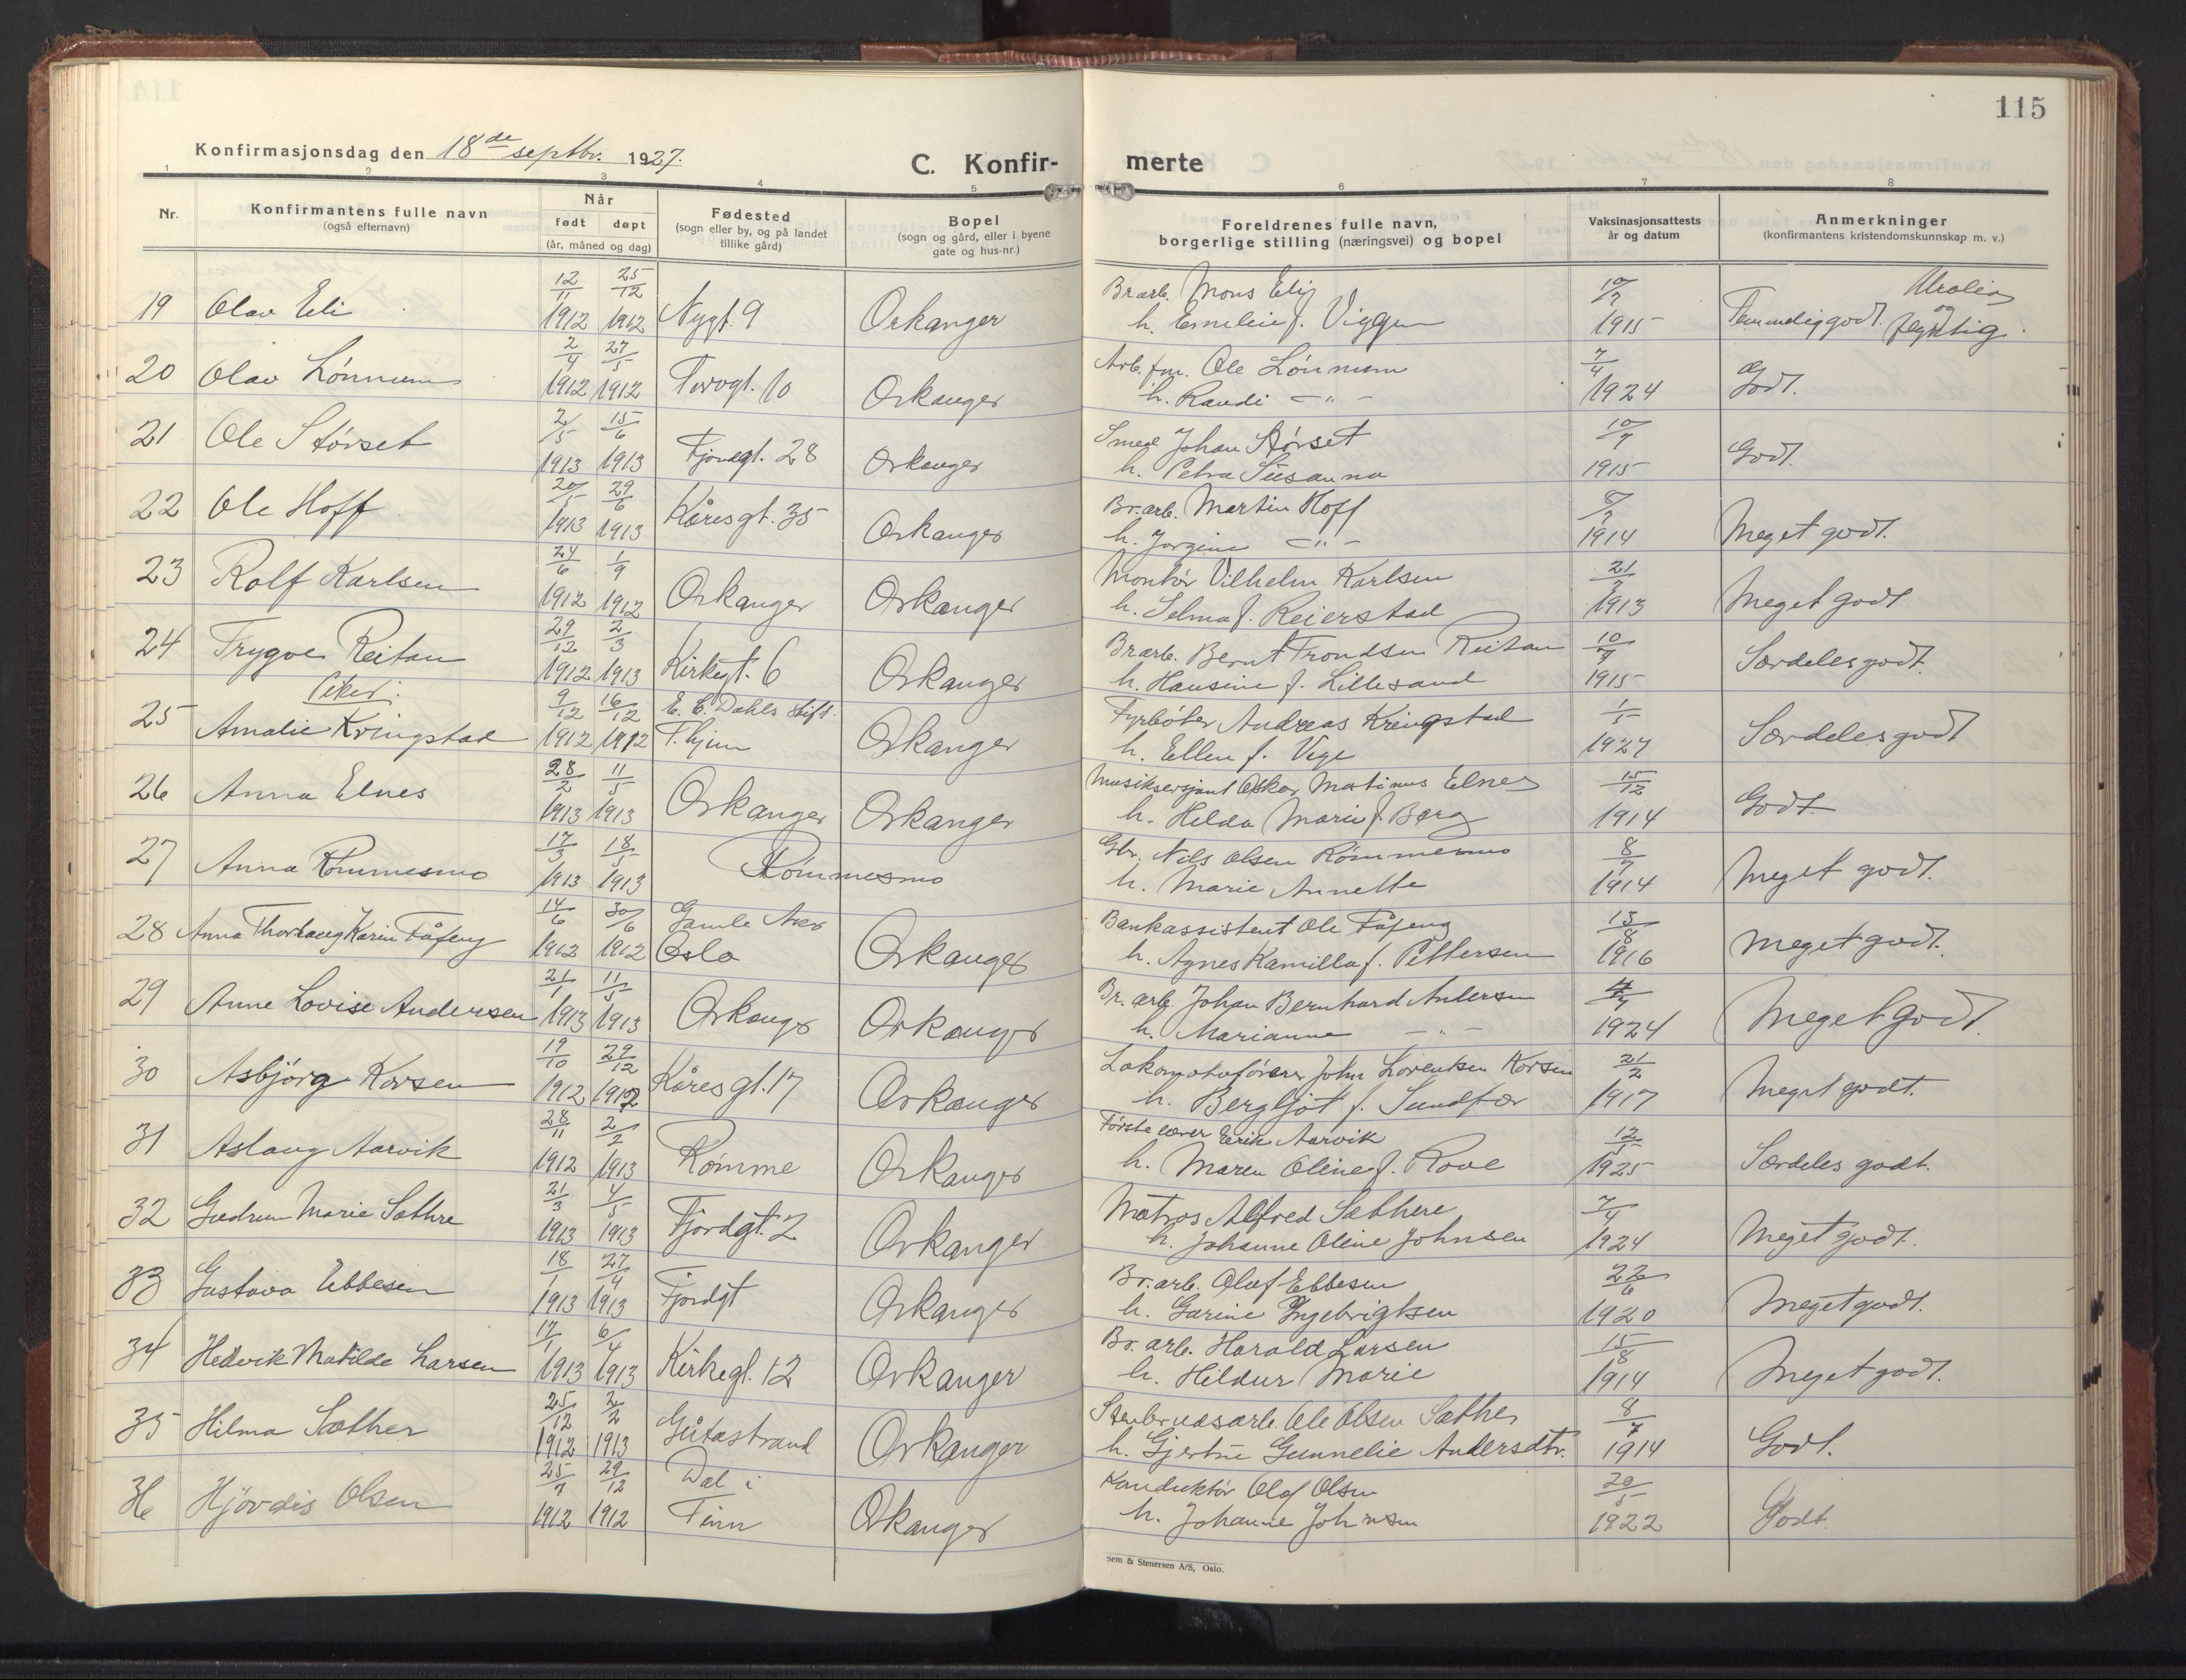 115
Konfirmasjonsdag den 18de septbr. 1927.
C. Konfir-
merte
1 2 3 4 5 6 7 8
Nr.
Konfirmantens fulle navn
(også efternavn)
Når
født døpt
(år, måned og dag)
Fødested
(sogn eller by, og på landet
tillike gård)
Bopel
(sogn og gård, eller i byene
gate og hus-nr.)
Foreldrenes fulle navn,
borgerlige stilling (næringsvei) og bopel
Vaksinasjonsattests
år og datum
Anmerkninger
(konfirmantens kristendomskunnskap m. v.)
12/11 25/12 Br.arb. Mons Eli 10/7 Urolig
19 Olav Eli 1912 1912 Nygt. 9 Orkanger h. Emelie f. Viggen 1915 Temmelig godt. og flyktig.
2/4 27/5 Arb. fm. Ole Lönmum 7/4
20 Olav Lönmum 1912 1912 Torvgt. 10 Orkanger h. Randi - " - 1924 Godt.
2/5 15/6 Smed Johan Störset 10/7
21 Ole Störset 1913 1913 Fjordgt. 28 Orkanger h. Petra Susanna 1915 Godt.
20/5 29/6 Br.arb. Martin Hoff 8/7
22 Ole Hoff 1913 1913 Kåresgt. 35 Orkanger h. Jorgine - " - 1914 Meget godt.
24/6 1/9 Montör Vilhelm Karlsen 21/7
23 Rolf Karlsen 1912 1912 Orkanger Orkanger h. Selma f. Reierstad 1913 Meget godt
29/12 2/3 Br.arb. Bernt Trondsen Reitan 10/7
24 Trygve Reitan 1912 1913 Kirkegt. 6 Orkanger h. Hansine f. Lillesand 1915 Særdeles godt.
Piker:
9/12 16/12 E. C. Dahls Stift. Fyrböter Andreas Kringstad 1/5
25 Amalie Kringstad 1912 1912 T.hjem Orkanger h. Ellen f. Vige 1927 Særdeles godt
28/2 11/5 Musiksersjant Oskar Matinus Elnes 15/12
26 Anna Elnes 1913 1913 Orkanger Orkanger h. Hilda Marie f. Berg 1914 Godt.
17/3 18/5 Gbr. Nils Olsen Römmesmo 8/7
27 Anna Römmesmo 1913 1913 Römmesmo h. Marie Annette 1914 Meget godt.
14/6 30/6 Gamle Aker Bankassistent Ole Fåfeng 13/8
28 Anna Thorlaug Karin Fåfeng 1912 1912 Oslo Orkanger h. Agnes Kamilla f. Pettersen 1916 Meget godt.
21/1 11/5 Br. arb. Johan Bernhard Andersen
29 Anne Lovise Andersen 1913 1913 Orkanger Orkanger h. Marianne - " - 1924 Meget godt.
19/10 29/12 Lokomotivförer John Lorentsen Korsen 21/2
30 Asbjörg Korsen 1912 1912 Kåresgt. 17 Orkanger h. Bergljót f. Sundfær 1917 Meget godt.
28/11 2/2 Förstelærer Eerik Aarvik 12/5
31 Aslaug Aarvik 1912 1913 Römme Orkanger h. Maren Oline f. Rove 1925 Særdeles godt.
21/3 4/5 Matros Alfred Sæthre 7/4
32 Gudrun Marie Sæthre 1913 1913 Fjordgt. 2 Orkanger h. Johanne Oline Johnsen 1924 Meget godt.
18/1 27/4 Br.arb. Olaf Ebbesen 22/6
33 Gustava Ebbesen 1913 1913 Fjordgt Orkanger h. Garine Ingebrigtsen 1920 Meget godt.
17/1 6/4 Br. arb. Harald Larsen 15/8
34 Hedvik Matilde Larsen 1913 1913 Kirkegt. 12 Orkanger h. Hildur Marie 1914 Meget godt.
25/12 2/2 Stenbruddsarb. Ole Olsen Sæther 8/7
35 Hilma Sæther 1912 1913 Gjetastrand Orkanger h. Gjertine Gunnelie Andersdtr. 1914 Godt.
25/7 29/12 Dal i Konduktör Olaf Olsen 20/5
36 Hjördis Olsen 1912 1912 Tinn Orkanger h. Johanne Johnsen 1922 Godt.
Sem & Stenersen A/S, Oslo.